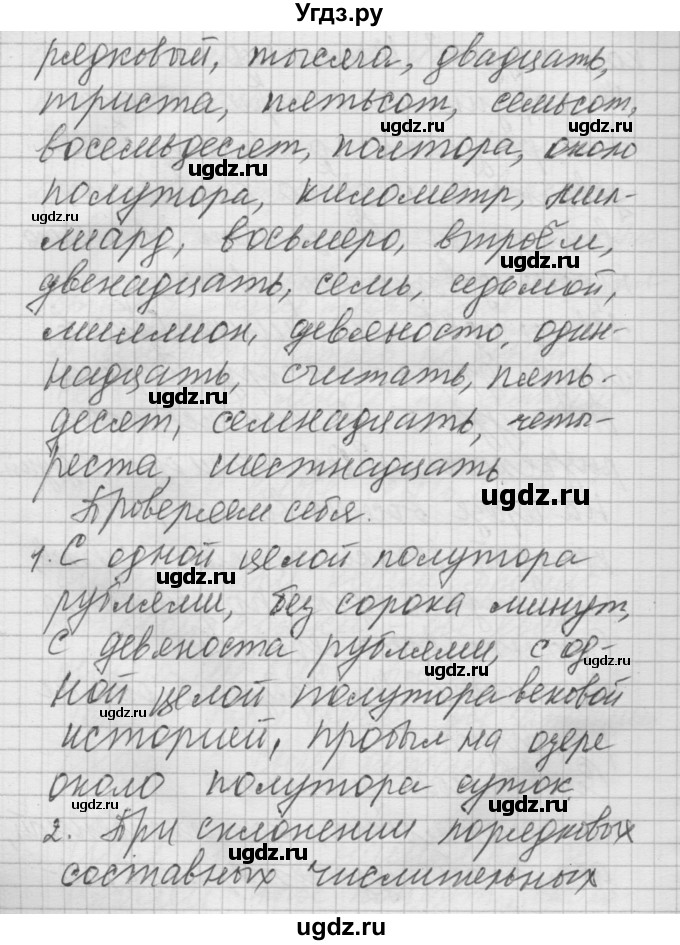 Угдз.ру
рядковый, тысяча, двадцать,
триста, пятьсот, семьсот,
ugdz.ru ugdz.ru
восемьдесят, полтора, около
полутора, километр, мил-
ugdz.ru
лиард, восьмеро, втроём,
ugdz.ru
двенадцать, семь, седьмой,
миллион, девяносто, один-
надцать, считать, пять-
ugdz.ru
десят, семнадцать, четы-
реста, шестнадцать
ugdz.ru
Проверяем себя.
1. С одной целой полутора
ugdz.ru
рублями, без сорока минут,
с девяноста рублями, с од-
ugdz.ru
ной целой полуторавековой
ugdz.ru
историей, пробыл на озере
около полутора суток
ugdz.ru
2. При склонении порядковых
ugdz.ru
составных числительных
ugdz.ru